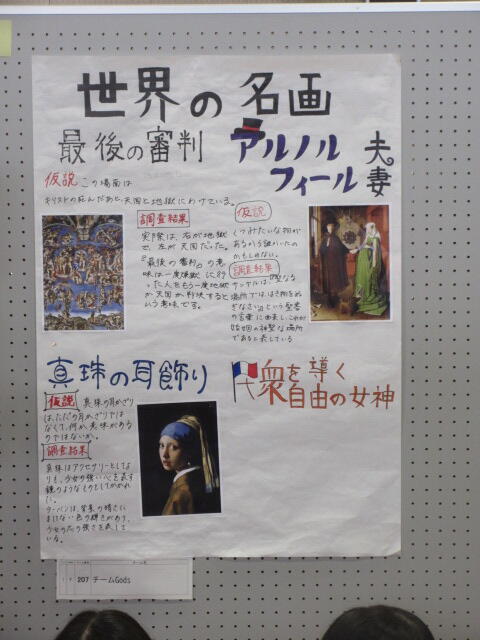 世界の名画
最後の審判
仮説 この場面は
キリストの死んだあと、天国と地獄にわけている。
調査結果
実際は、右が地獄
で、左が天国だった。
『最後の審判』の意
味は一度煉獄に行
った人をもう一度地獄
か天国か判決すると
いう意味です。
アルノル
フィール
夫妻
仮説
くつみたいな物が
あるから誰かいたの
かもしれない。
調査結果
サンダルは『聖なる
場所では、はき物をぬ
ぎなさい』という聖書
の言葉に由来し、これが
神聖な場所
であると表している
真珠の耳飾り
仮説 真珠の耳かざり
は、ただの耳かざりでは
なくて、何か意味がある
のではないか。
調査結果
真珠はアクセサリーとしてよ
りも、少女の強い心を表す
鏡のようなものとしてかかれ
た。
ターバンは、背景の暗さに
まけない色の輝きがあり、
少女の心の強さを表して
いる。
民衆を導く
自由の女神
207 チームGods